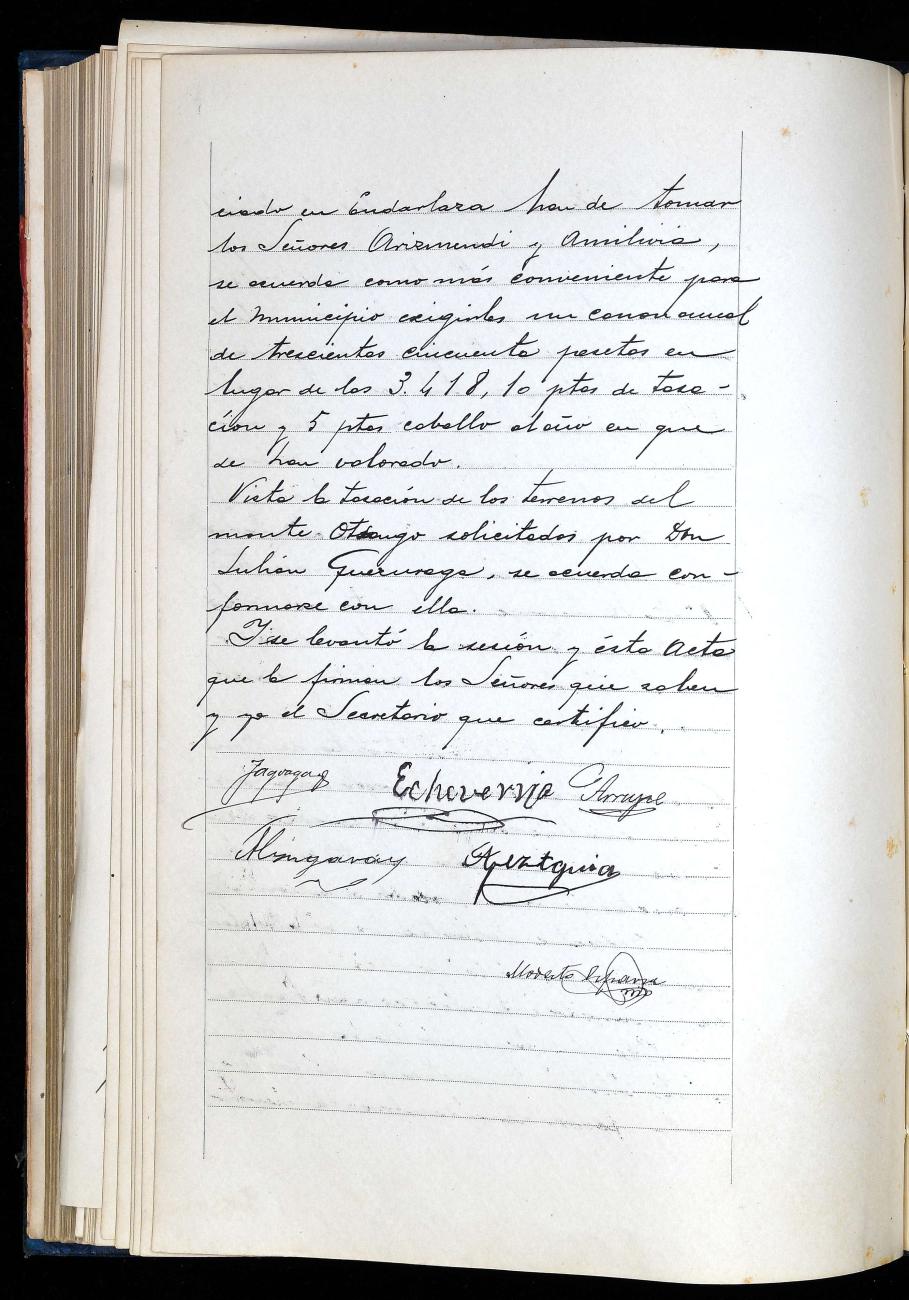 ciado en Endarlaza han de tomar
los Señores Arizmendi y Amilivia,
se acuerda como más conveniente para
el Municipio exigirles un canon anual
de trescientas cincuenta pesetas en
lugar de las 3.418,10 ptas de tasa-
ción y 5 ptas caballo al año en que
se han valorado.
Vista la tasación de los terrenos del
monte Otsango solicitados por Don
Julián Guezuraga, se acuerda con-
formarse con ella.
Y se levantó la sesión y ésta Acta
que la firman los Señores que saben
y yo el Secretario que certifico.
Echeverria Arrupe
Modesto